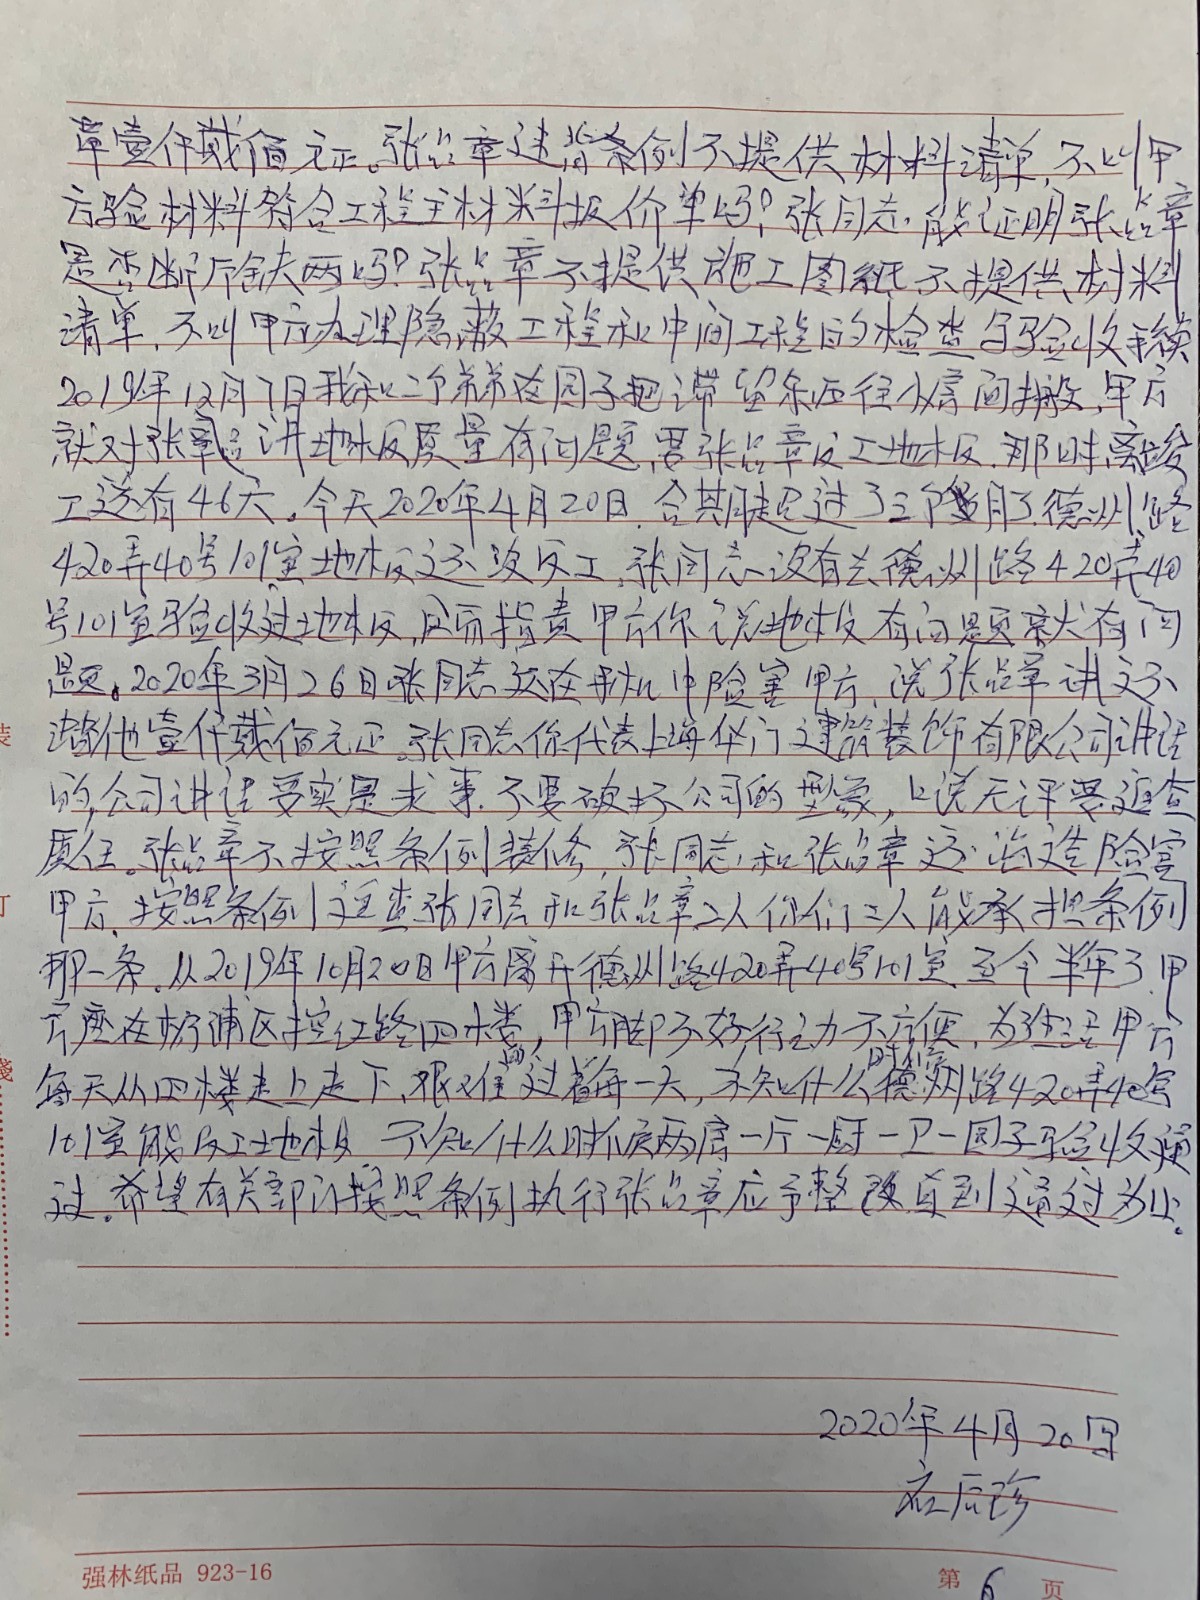 章壹仟贰佰元正。张品章违背条例不提供材料清单,不叫甲
方验材料符合工程主材料报价单吗?张同志,能证明张品章
是否断斤缺两吗?张品章不提供施工图纸不提供材料
清单,不叫甲方办理隐蔽工程和中间工程的检查与验收手续
2019年12月7日我和二个弟弟在园子把滞留东西往小房间搬,甲方
就对张章品讲地板质量有问题,要张品章反工地板.那时离竣
工还有46天。今天2020年4月20日,合其月超过了三个月了.德州路
420弄40号101室地板还没反工,张同志没有去德州路420弄40
号101室验收过地板,反而指责甲方你说地板有问题就有问
题。2020年3月26日张同志还在手机中险害甲方,说张品章讲还
借他壹仟贰佰元正.张同志你代表上海华门建筑装饰有限公司讲话
的,公司讲话要实是求事.不要破坏公司的型象,上说无评要追查
质任。张品章不按照条例装修,张同志和张品章还造险害
甲方.按照条例追查张同志和张品章二人你们二人能承担条例
那一条.从2019年10月20日甲方离开德州路420弄40号101室至今半年了.甲
方座在杨浦区控江路四楼,甲方脚不好行动不方便,为生活甲方
每天从四楼走上走下,艰难的过着每一天,不知什么时候德州路420弄40号
101室能反工地板 不知什么时候两房一厅一厨一卫一园子验收通
过.希望有关部门按照条例执行张品章应予整改直到通过为止.
2020年4月20日
应后珍
强林纸品 923-16
第 6 页
装
订
线